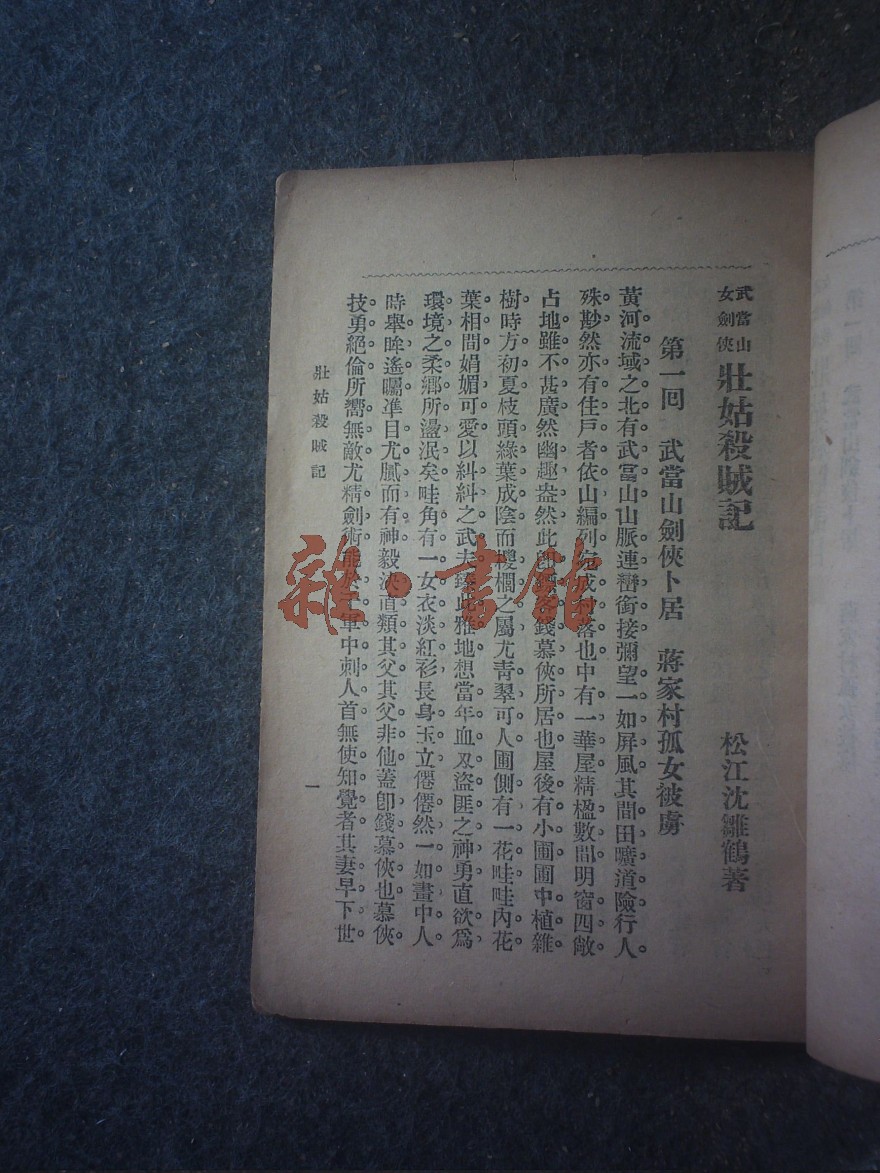 武當山
女劍俠
壯姑殺賊記
松江沈雛鶴著
第一回 武當山劍俠卜居 蔣家村孤女被虜
黃河流域之北有武當山山脈連巒銜接彌望一如屏風其間田曠道險行人
殊尠然亦有住戶者依山編列宛成村落也中有一華屋精楹數間明窗四敞
占地雖不甚廣然幽趣盎然此卽錢慕俠所居也屋後有小圃圃中植雜
樹時方初夏枝頭綠葉成陰而櫻櫚之屬尤靑翠可人圃側有一花畦畦內花
葉相間娟媚可愛以糾糾之武夫臻此雅地想當年血刄盜匪之神勇直欲爲
環境之柔鄉所盪泯矣畦角有一女衣淡紅衫長身玉立僊僊然一如畫中人
時舉眸遙矚準目尤膩而有神毅決直類其父其父非他蓋卽錢慕俠也慕俠
技勇絕倫所嚮無敵尤精劍術能於軍中刺人首無使知覺者其妻早下世
壯姑殺賊記
一
雜·書館